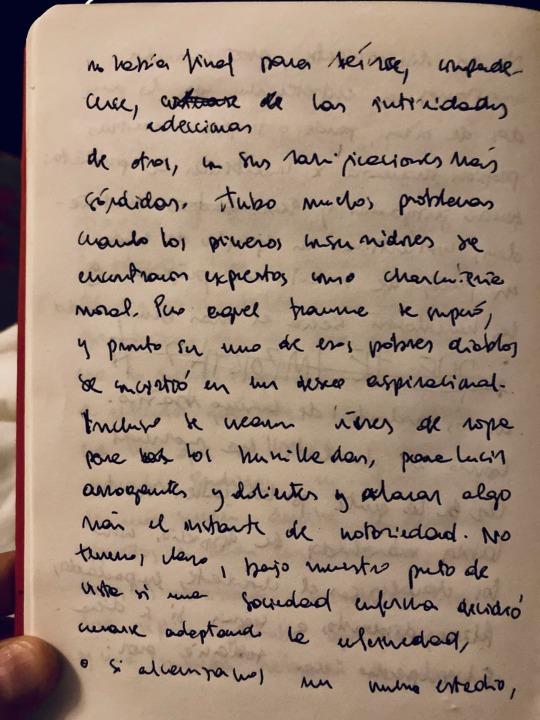 no había final para reírse, compade-
cerse, de las intimidades
adecionas
de otros, en sus ramificaciones más
sórdidas. Hubo muchos problemas
cuando los primeros consumidores se
encontraron expuestos como charcutería
moral. Pero aquel trauma se superó,
y pronto ser uno de esos pobres diablos
se convirtió en un deseo aspiracional.
Incluso se crearon líneas de ropa
para los humillados, para lucir
arrogantes y dolientes y alargar algo
más el instante de notoriedad. No
tenemos claro, bajo nuestro punto de
vista si una sociedad enferma decidió
curarse adoptando la enfermedad,
o si alcanzamos un nuevo estadio,